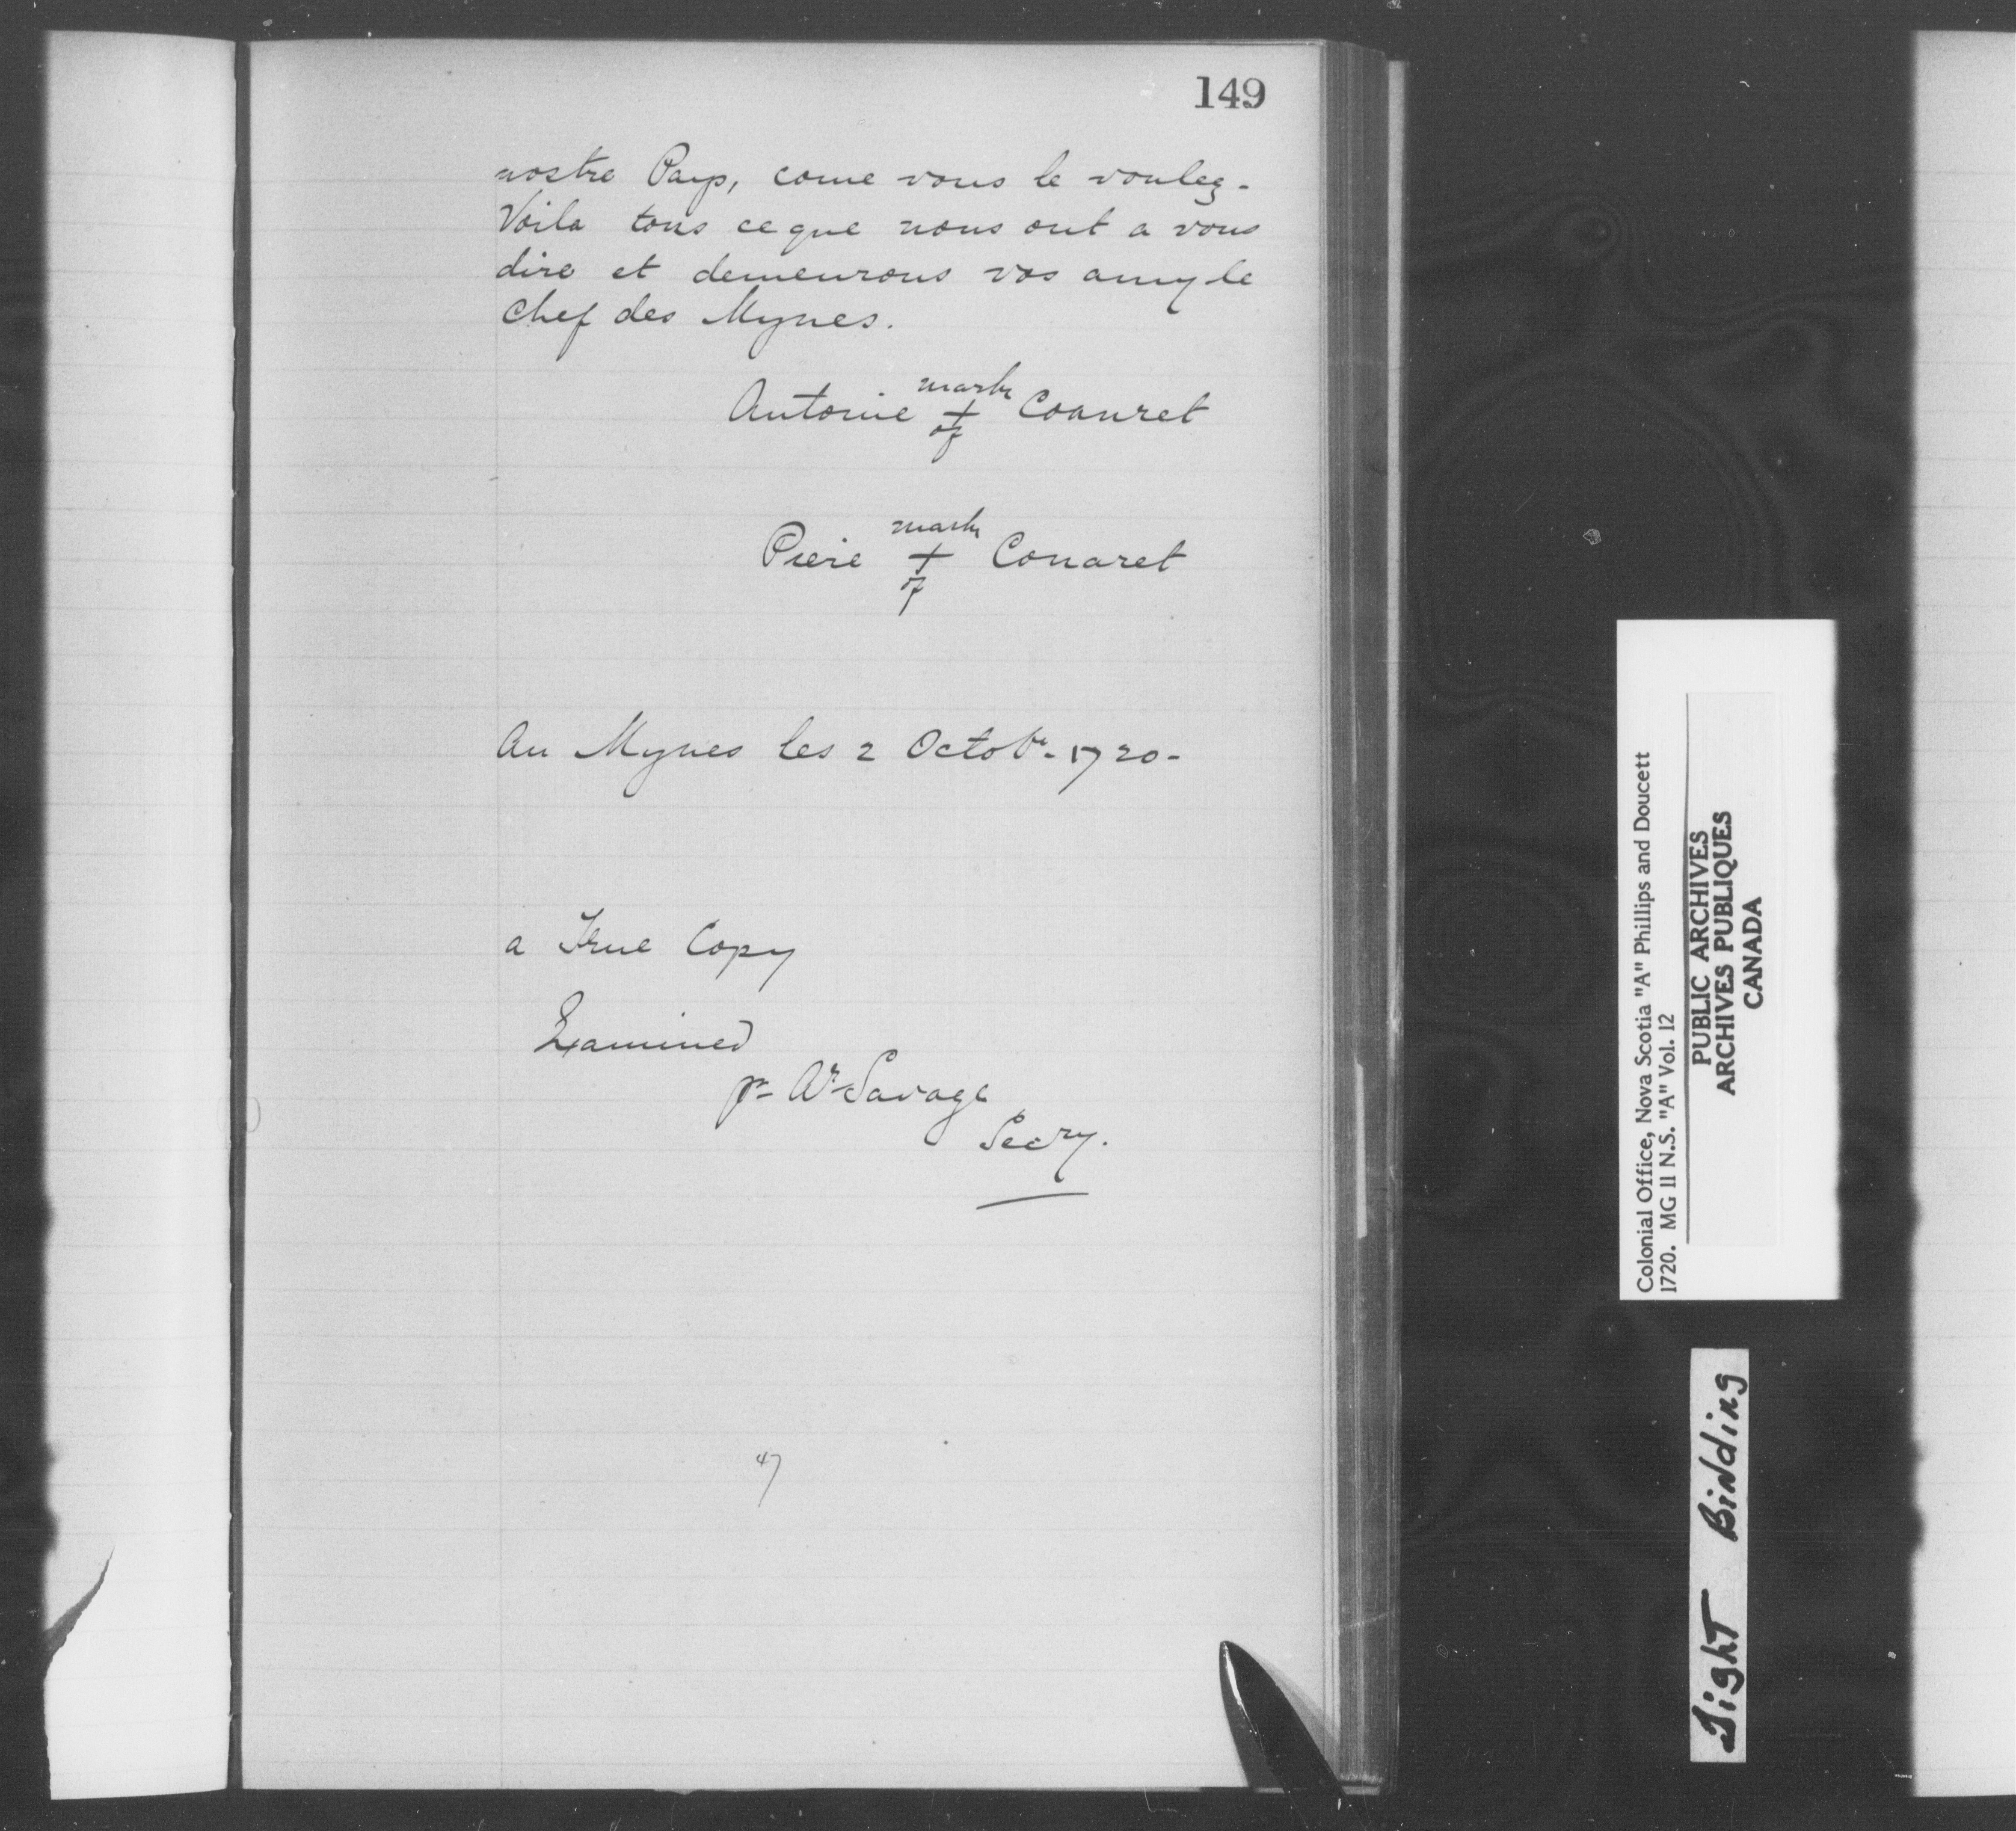 149
nostre Pays, come vous le voulez.
Voila tous ce que nous ont a vous
dire et demeurons vos amy le
chef des Mynes.
mark
Antoine + Couaret
of
mark
Piere + Couaret
of
Au Mynes les 2 Octobr. 1720.
a True Copy
Examined
pr Ar Savage
Secry.
47
Colonial Office, Nova Scotia "A" Phillips and Doucett
1720. MG 11 N.S. "A" Vol. 12
PUBLIC ARCHIVES
ARCHIVES PUBLIQUES
CANADA
Tight Binding